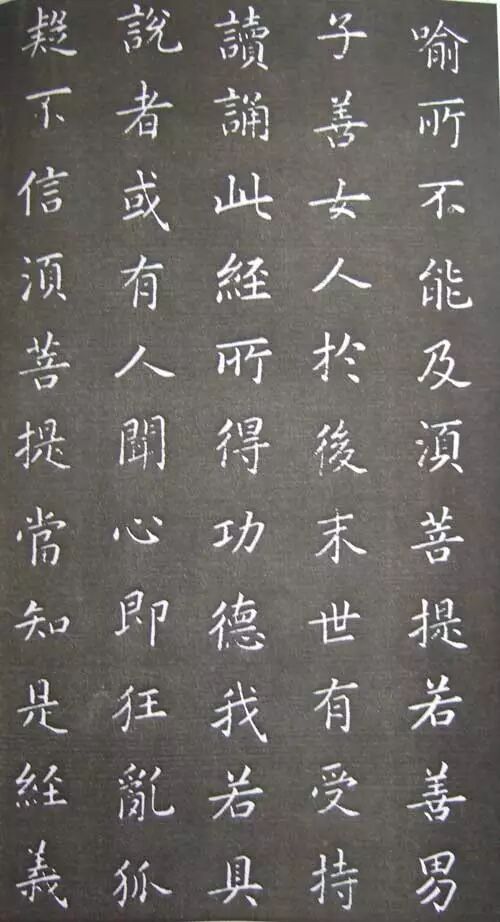 喻所不能及須菩提若善男
子善女人於後末世有受持
讀誦此經所得功德我若具
說者或有人聞心即狂亂狐
疑不信須菩提當知是經義